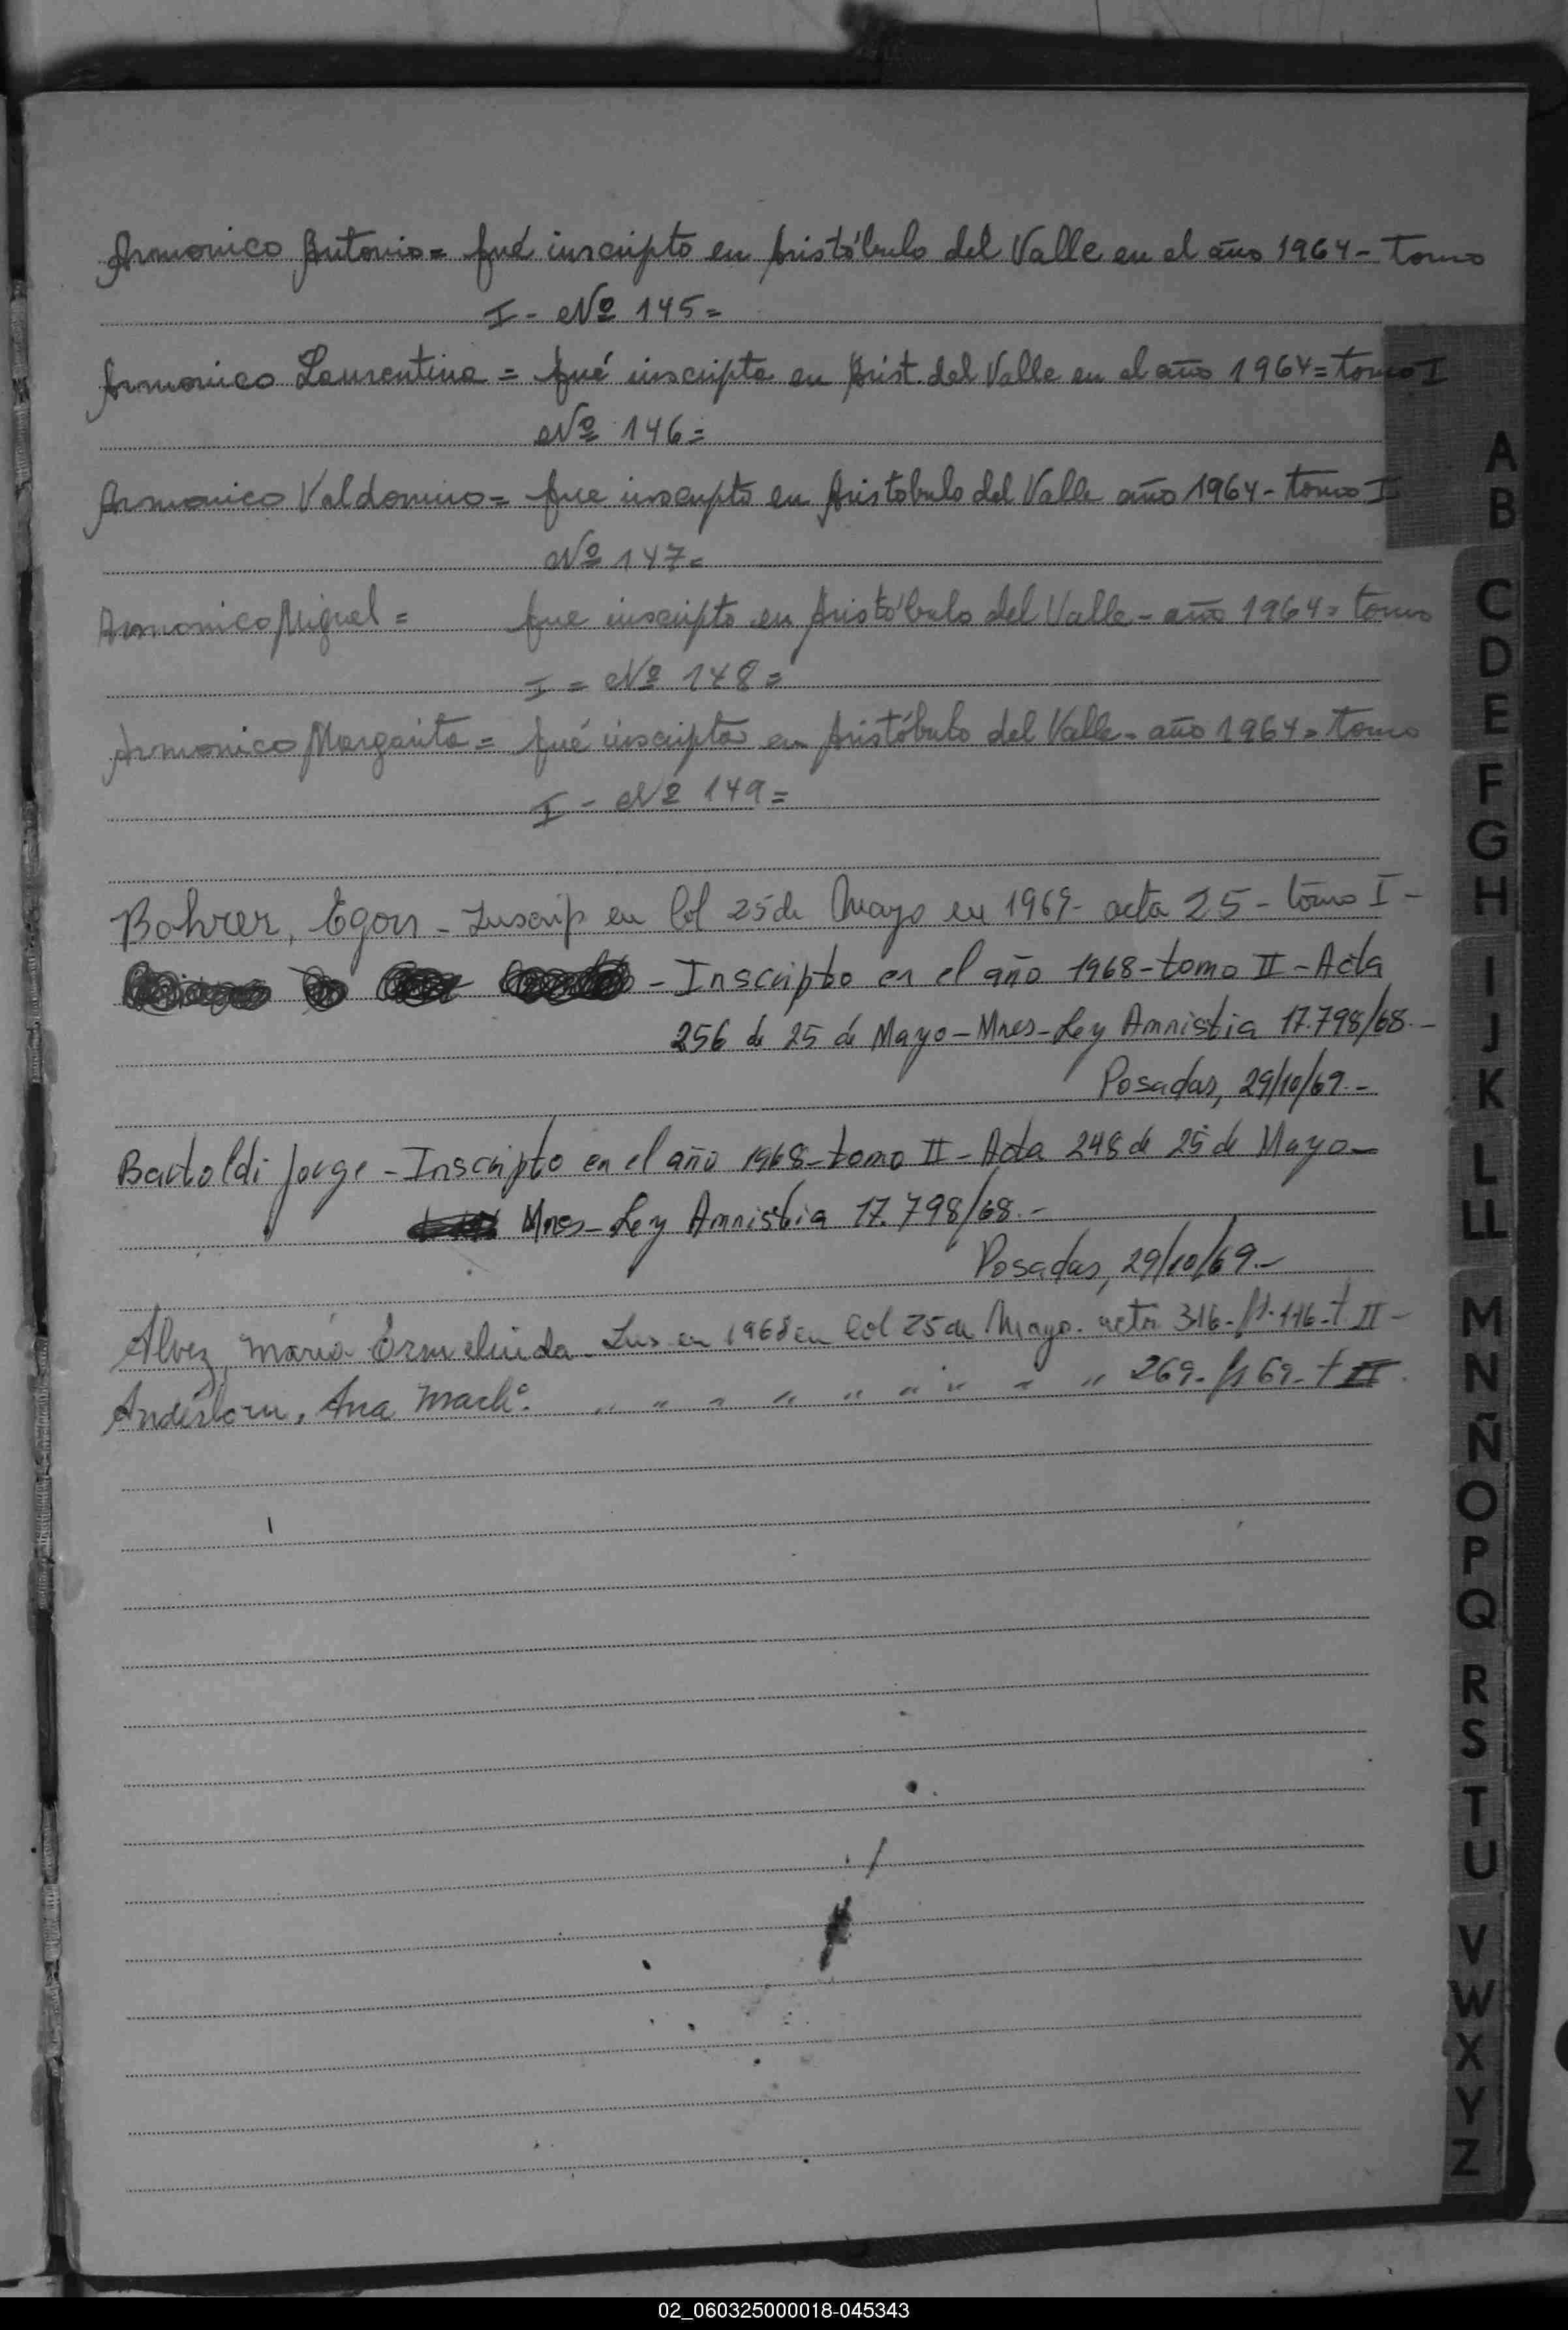 Armonico Antonio = fué inscripto en Aristóbulo del Valle en el año 1964 - Tomo
I - Nº 145 =
Armonico Laurentina = fué inscripta en Arist. del Valle en el año 1964 = tomo I
Nº 146 =
Armonico Valdomiro = fue inscripto en Aristobulo del Valle año 1964 - tomo I
Nº 147 =
Armonico Miguel = fue inscripto en Aristóbulo del Valle - año 1964 = tomo
I = Nº 148 =
Armonico Margarita = fué inscripta en Aristóbulo del Valle - año 1964 = tomo
I - Nº 149 =
Bohrer, Egon - Inscrip en Col 25 de Mayo en 1969 - acta 25 - tomo I -
- Inscripto en el año 1968 - tomo II - Acta
256 de 25 de Mayo - Mnes - Ley Amnistia 17.798/68. -
Posadas, 29/10/69. -
Bartoldi Jorge - Inscripto en el año 1968 - tomo II - Acta 248 de 25 de Mayo -
Mnes - Ley Amnistia 17.798/68. -
Posadas, 29/10/69. -
Alvez, Maria Ormelinda - Ins en 1968 en Col 25 de Mayo. acta 316 - fs. 116 - t. II -
Ana " " " " " " " " 269 - fs 69 - t II.
A
B
C
D
E
F
G
H
I
J
K
L
LL
M
N
Ñ
O
P
Q
R
S
T
U
V
W
X
Y
Z
02_060325000018-045343